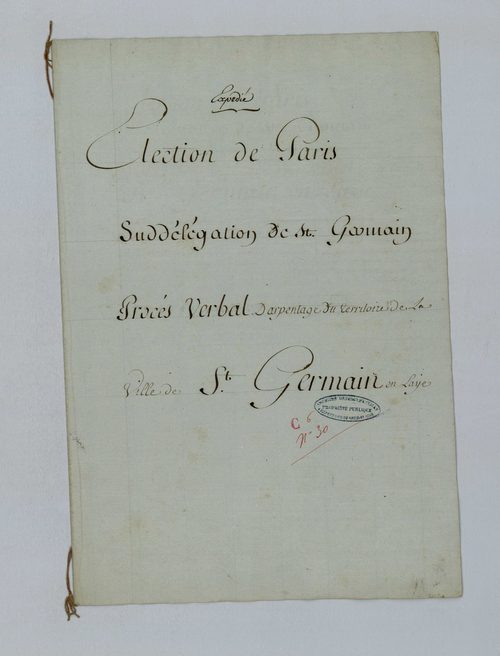 Expedié
Election de Paris
Subdélégation de St. Germain
Procés Verbal D'arpentage du territoire de La
Ville de St. Germain en Laye
PROPRIÉTÉ PUBLIQUE
C 6
n° 30